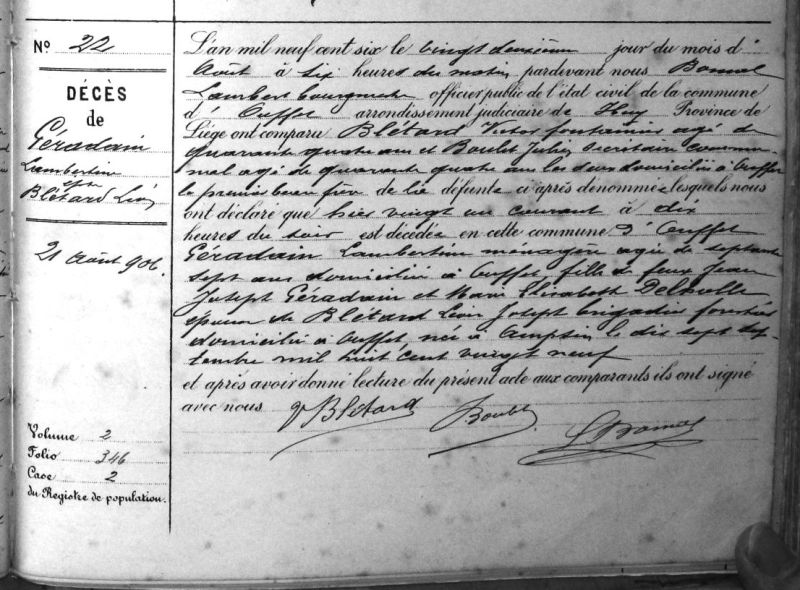 N° 22
DÉCÈS
de
Géradain
Lambertine
épse
Blétard Léon
21 Août 906.
Volume 2
Folio 346
Case 2
du Registre de population.
L'an mil neuf cent six le vingt deuxième jour du mois d'
Août à six heures du matin, pardevant nous Bonmal
Lambert bourgmestre officier public de l'état civil de la commune
d' Ouffet arrondissement judiciaire de Huy Province de
Liége ont comparu Blétard Victor fontainier agé de
quarante quatre ans et Boulet Julien secrétaire commu-
nal agé de quarante quatre ans les deux domiciliés à Ouffet
le premier beau frère de la défunte ci après dénommée lesquels nous
ont déclaré que hier vingt un courant à dix
heures du soir est décédée en cette commune d'Ouffet
Géradain Lambertine ménagère agée de septante
sept ans domiciliée à Ouffet fille de feux Jean
Joseph Géradain et Marie Elisabeth
épouse de Blétard Léon Joseph brigadier forestier
domicilié à Ouffet, née à Ampsin le dix sept sep-
tembre mil huit cent vingt neuf
et après avoir donné lecture du présent acte aux comparants ils ont signé
avec nous VBlétard Boulet LBonmal